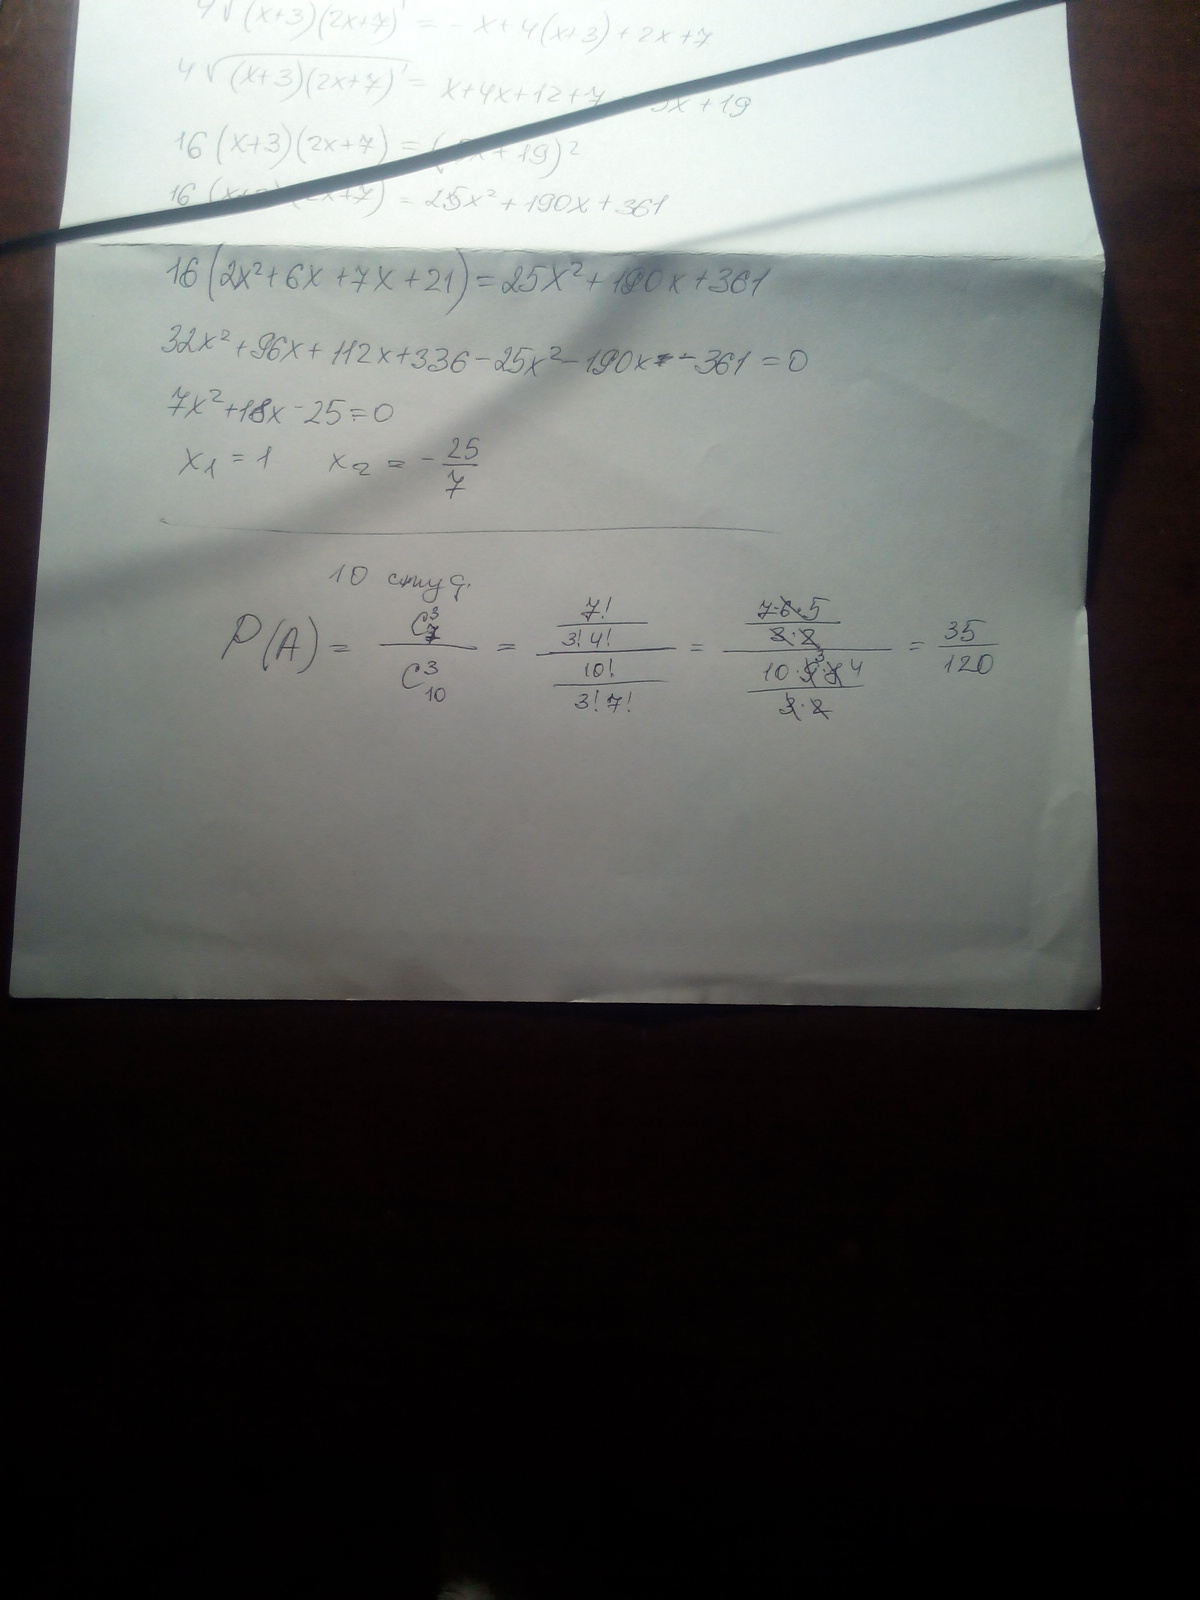 4√(x+3)(2x+7) = -x+4(x+3)+2x+7
4√(x+3)(2x+7) = x+4x+12+7 5x+19
16(x+3)(2x+7) = (5x+19)²
16(x+3)(2x+7) = 25x²+190x+361
16(2x²+6x+7x+21)=25x²+190x+361
32x²+96x+112x+336-25x²-190x-361=0
7x²+18x-25=0
x₁=1 x₂=-25/7
10 студ.
P(A) = C₇³/C₁₀³ = (7!/(3!4!))/(10!/(3!7!)) = ((7·6·5)/(3·2))/((10·9³·8 4)/(3·2)) = 35/120